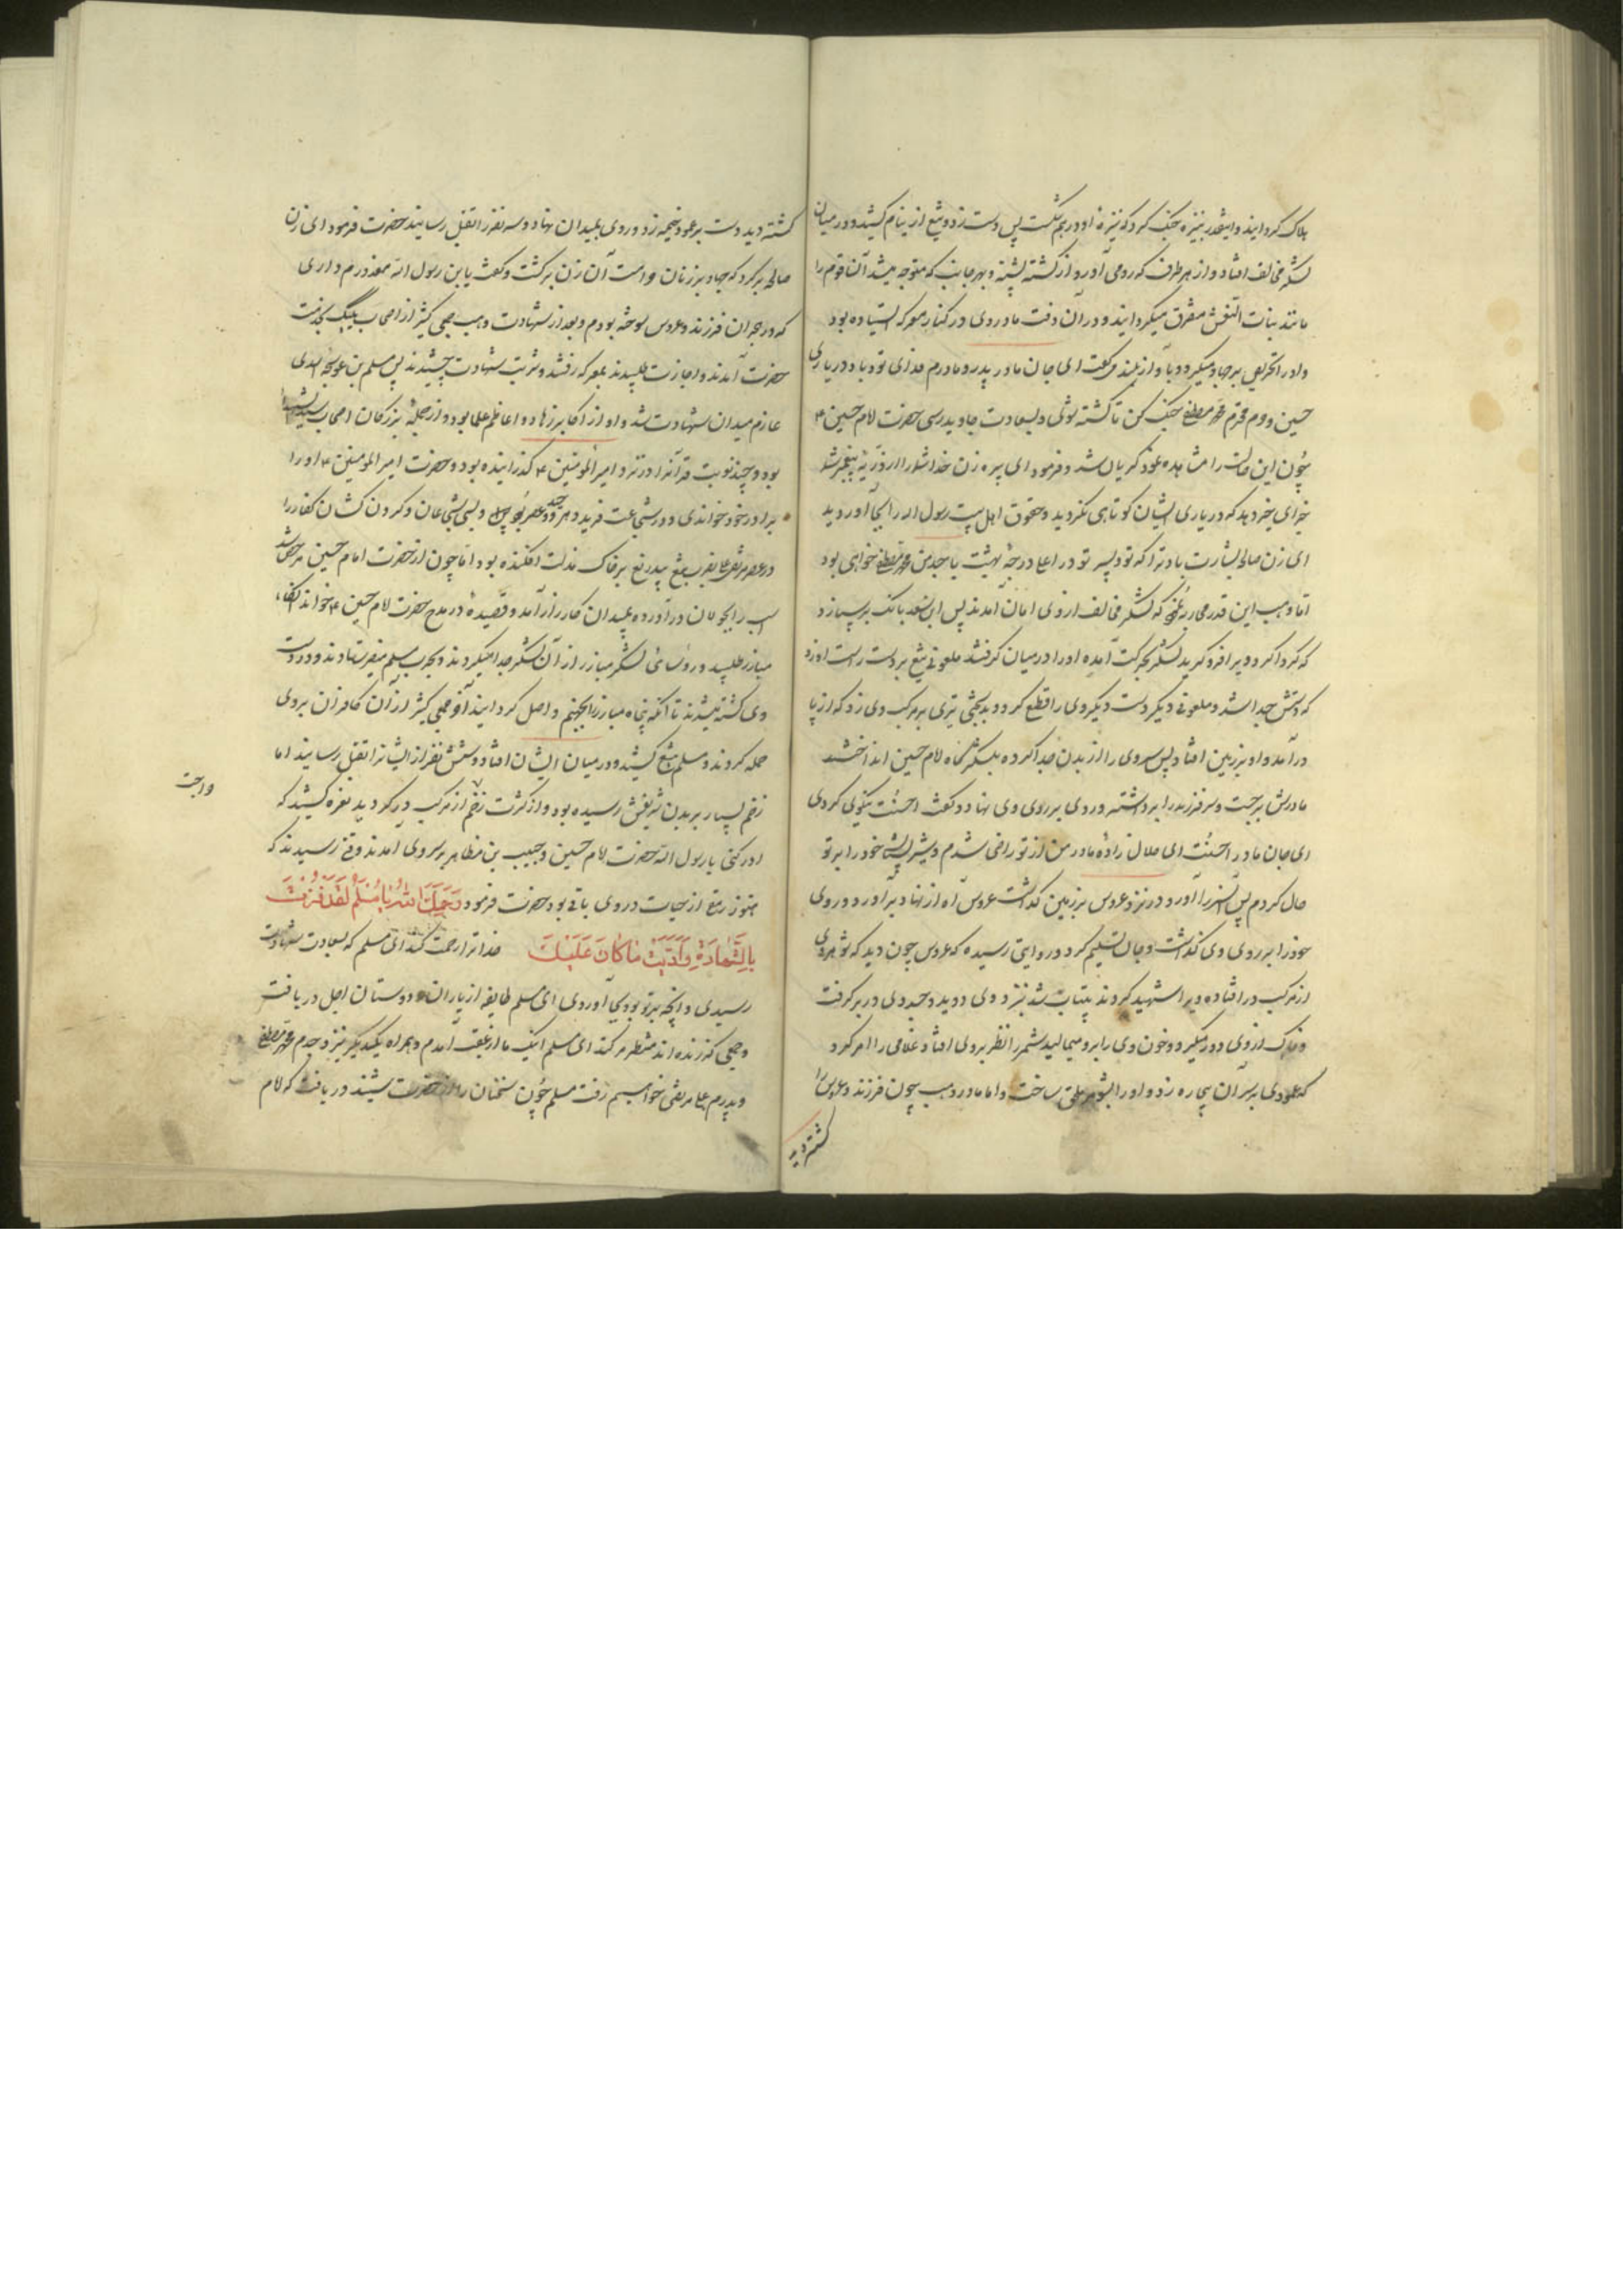 هلاک کردانید و اینقدر بنیزه جنک کرد که نیزهٔ او درهم شکست پس دست زد و تیغ از نیام کشید و در میان
لشکر مخالف افتاد و از هر طرف که رو می آورد از کشته پشته و بهر جانب که متوجه میشد آن قوم را
مانند بنات النعش متفرق میکردانید و در آن وقت مادر وی در کنار معرکه ایستاده بود
و او را تحریص بر جهاد میکرد و به آواز بلند می کفت ای جان مادر پدر و مادرم فدای تو باد در یاری
حسین و حرم محترم محمد مصطفی جنک کن تا کشته شوی و بسعادت جاوید رسی حضرت امام حسین ع
چون این حالت را مشاهده نمود کریان شد و فرمود ای پیره زن خدا شما را از ذریهٔ پیغمبر شما
جزای خیر دهد که در یاری ایشان کوتاهی نکردید و حقوق اهل بیت رسول الله را بجا آوردید
ای زن صالحه بشارت باد ترا که تو و پسر تو در اعلا درجهٔ بهشت با جد من محمد مصطفی خواهی بود
اما وهب این قدر می رزمید که لشکر مخالف از وی امان آمدند پس ابن سعد بانک بر سپاه زد
که کرداکرد ویرا فرو کیرید لشکر بحرکت آمده او را در میان کرفتند ملعونی تیغ بر دست راست او زد
که دستش جدا شد و ملعونی دیکر دست دیکر وی را قطع کرد و بدبختی تیری بر مرکب وی زد که از پا
درآمد و او بر زمین افتاد پس سر وی را از بدن جدا کرده بلشکرگاه امام حسین انداختند
مادرش برجست و سر فرزند را برداشته و روی بر روی وی نهاد و کفت احسنت نیکوئی کردی
ای جان مادر احسنت ای حلال زادهٔ مادر من از تو راضی شدم و شیر پستان خود را بر تو
حلال کردم پس آن سر را آورد و در نزد عروس بر زمین کذاشت عروس آه از نهاد برآورد و روی
خود را بر روی وی کذاشت و جان تسلیم کرد و در روایتی رسیده که عروس چون دید که شوهر وی
از مرکب درافتاده ویرا شهید کردند بیتاب شد نزد وی دوید و جسد وی در بر کرفت
و خاک از وی دور میکرد و خون وی را برو میمالید شمر را نظر بر وی افتاد غلامی را امر کرد
که عمودی بر سر آن بیچاره زد و او را بشوهر ملحق ساخت و اما مادر وهب چون فرزند و عروس را
کشته دید
کشته دید دست بر عمود خیمه زد و روی بمیدان نهاد و سه نفر را بقتل رسانید حضرت فرمود ای زن
صالحه برکرد که جهاد بر زنان نیست آن زن برکشت و کفت یا ابن رسول الله معذورم داری
که در هجران فرزند و عروس سوخته بودم و بعد از شهادت وهب جمعی کثیر از اصحاب یک یک بخدمت
حضرت آمدند و اجازت طلبیدند بمعرکه رفتند و شربت شهادت چشیدند پس مسلم بن عوسجه اسدی
عازم میدان شهادت شد و او از اکابر زهاد و اعاظم علما بود و از جملهٔ بزرکان اصحاب سید الشهدا
بود و چند نوبت قرآن را در نزد امیر المؤمنین ع کذرانیده بود و حضرت امیر المؤمنین ع او را
برادر خود خواندی و در شجاعت فرید
در عصر مرتضی علی بضرب تیغ بیدریغ بر خاک مذلت افکنده بود اما چون از حضرت امام حسین مرخص شد
اسب را بجولان درآورده بمیدان کارزار آمد و قصیدهٔ در مدح حضرت امام حسین ع خواند آنکاه
مبارز طلبید و رؤسای لشکر مبارز از آن لشکر جدا میکردند و بحرب مسلم میفرستادند و در دست
وی کشته میشدند تا آنکه پنجاه مبارز را بجهنم واصل کردانید آخر جمعی کثیر از آن کافران بر وی
حمله کردند و مسلم تیغ کشید و در میان ایشان افتاد و شش نفر از ایشانرا بقتل رسانید اما
زخم بسیار بر بدن شریفش رسیده بود و از کثرت زخم از مرکب در کردید نعره کشید که
ادرکنی یا ابن رسول الله حضرت امام حسین و حبیب بن مظاهر بر سر وی آمدند وقتی رسیدند که
هنوز رمقی از حیات در وی باقی بود حضرت فرمود رَحِمَکَ اللهُ یا مُسْلِمُ لَقَدْ فُزْتَ
بِالشَّهادَةِ وَاَدَّیْتَ ما کانَ عَلَیْكَ خدا ترا رحمت کند ای مسلم که بسعادت شهادت
رسیدی و آنچه بر تو بود بجا آوردی ای مسلم طایفه از یاران و دوستان اجل دریافت
و جمعی که زنده اند منتظر مرکند ای مسلم اینک ما از عقب آمدم و همراه یکدیکر نزد جدم محمد مصطفی
و پدرم علی مرتضی خواهیم رفت مسلم چون سخنان را از حضرت شنید دریافت که امام